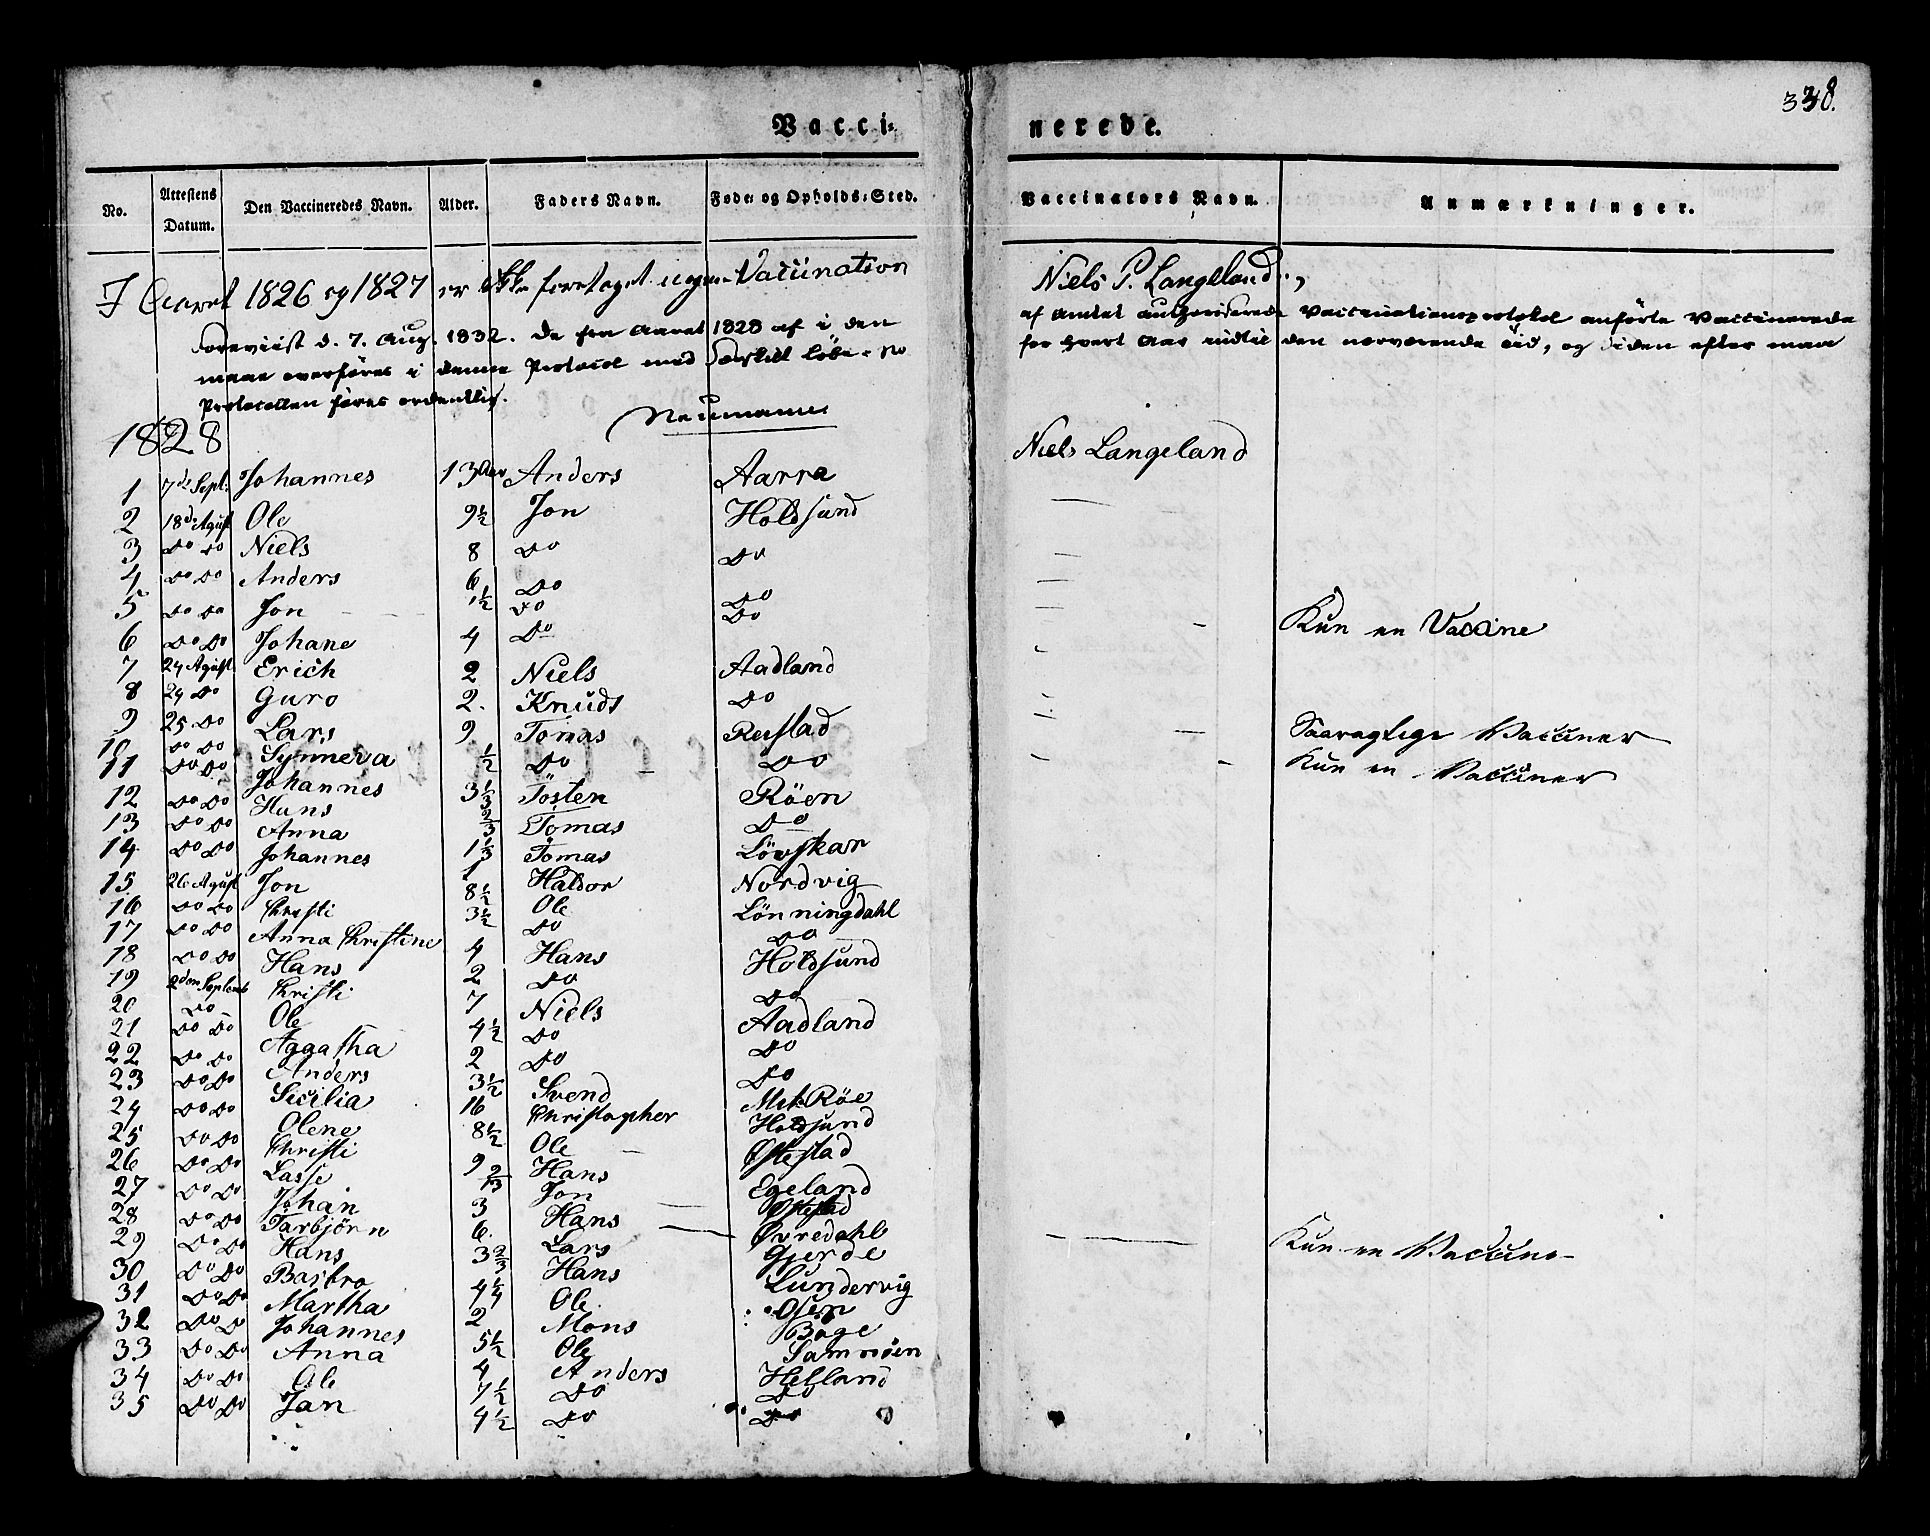 338.
Vacci= nerede.
No. Attestens Datum. Den Vaccineredes Navn. Alder. Faders Navn. Føde= og Opholds=Sted. Vaccinators Navn. Anmærkninger.
I Aaret 1826 og 1827 er ikke foretaget nogen Vaccination Niels P. Langeland
Foreviist d. 7. Aug. 1832. De fra Aaret 1828 af i den af Amtet authoriserede Vaccinationsprotokol anførte Vaccinerede
maae overføres i denne Protocol med særskilt Løbe=No for hvert Aar indtil den nærværende Tid, og siden efter maa
Protocollen føres ordentlig.
Neumann
1828 Niels Langeland
1 7de Sept: Johannes 13 Aar Anders Aarra
2 18de Agust Ole 9½ Jon Holdsund —
3 Do Do Niels 8 Do Do —
4 Do Do Anders 6 Do Do —
5 Do Do Jon 1½ Do Do — Kun en Vaccine
6 Do Do Johane 4 Do
7 24 Agust Erich 2 Niels Aadland
8 24 Do Guro 2. Knuds Do
9 25 Do Lars 9 Tomas Reistad — Saaragtige Vacciner
10 Do Do Synneva ½ Do Do — Kun en Vacciner
11 Do Do Johannes 3⅓ Tosten Röen
12 Do Do Hans ⅔ Tomas Do
13 Do Do Anna 1⅓ Tomas Lövskar
14 Do Do Johannes 1 Haldor Nordvig
15 26 Agust Jon 8½ Ole Lönningdahl
16 Do Do Christi 3½ Do Do
17 Do Do Anna Christine 4 Hans Holdsund
18 Do Do Hans 2 Do Do
19 2den Septemb Christi 7 Niels Aadland
20 Do Ole 4½ Do Do
21 Do Do Aggatha 2 Do Do
22 Do Do Anders 3½ Svend Mek Röe
23 Do Do Sicilia 16 Christopher Holdsund
24 Do Do Olene 8½ Ole Østestad
25 Do Do Christi 9 Hans Egeland
26 Do Do Lasse Jon Østestad
27 Do Do Johan 3 Hans Øvredahl — Kun en Vaccine
28 Do Do Tarbjörn 6. Lars Gjerde
29 Do Do Hans 3⅔ Hans Lundervig
30 Do Do Barbro 4¼ Ole Osen
31 Do Do Martha 2 Mons Boge
32 Do Do Johannes 5½ Ole Samnöen
33 Do Do Anna 4 Anders Helland
34 Do Do Ole 7½ Do Do
35 Do Do Jan 4½ Do Do